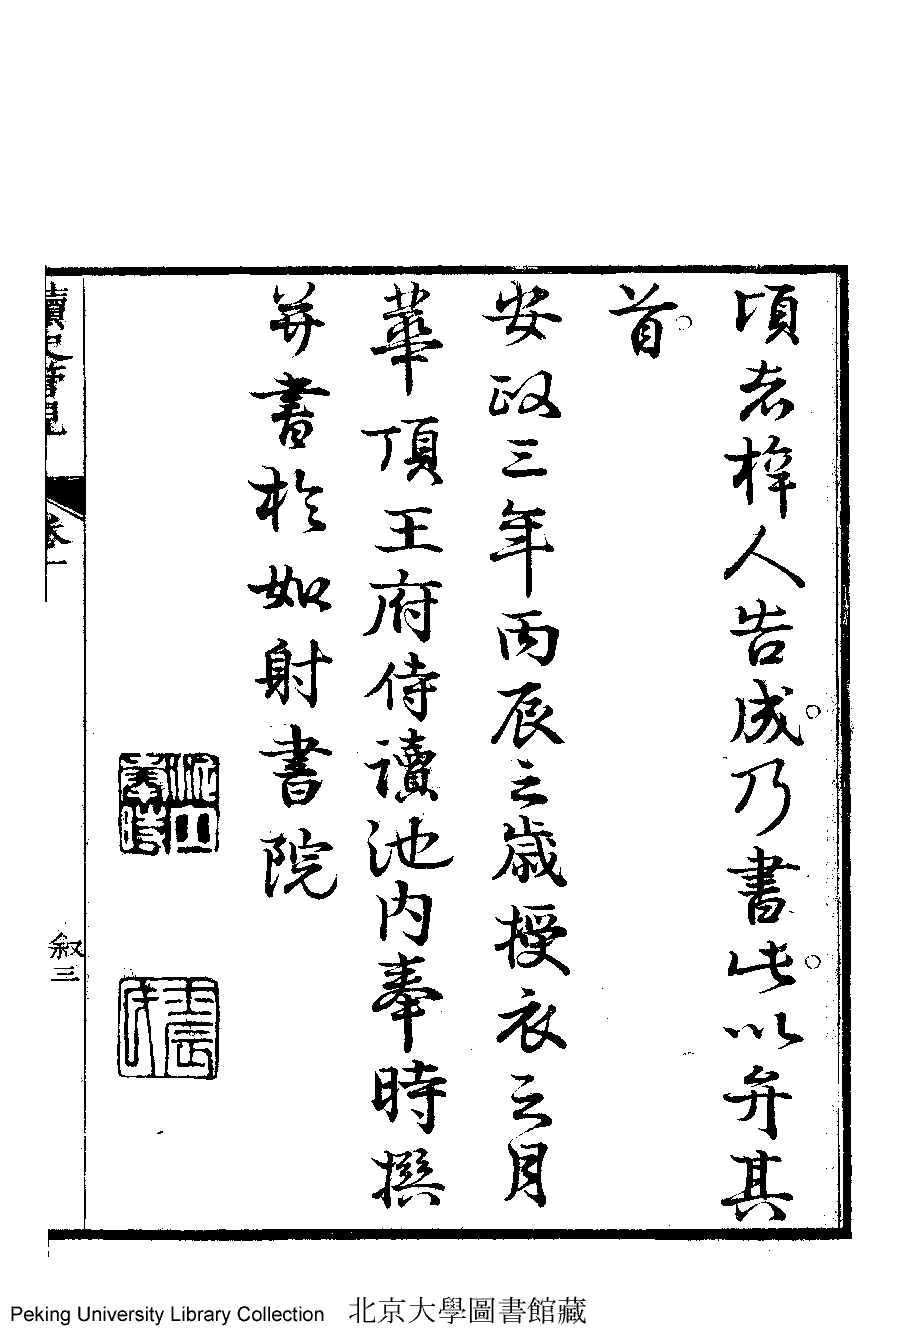 頃者梓人告成。乃書此。以弁其
首。
安政三年丙辰之歲授衣之月
華頂王府侍讀池内奉時撰
并書於如射書院
讀史管見
卷一
叙三
Peking University Library Collection 北京大學圖書館藏